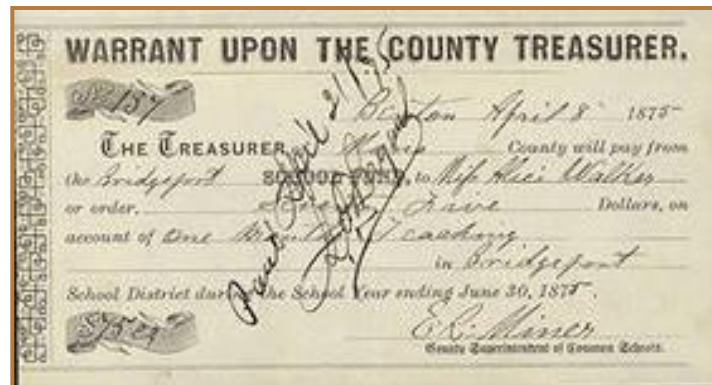 WARRANT UPON THE COUNTY TREASURER.
No 157
Benton April 8 1875
THE TREASURER Mono County will pay from
the Bridgeport SCHOOL FUND, to Miss Alice Walker
or order, Five Dollars, on
account of One Month Teaching
in Bridgeport
School District during the School Year ending June 30, 1875.
$75.00
E. R. Miner
County Superintendent of Common Schools.
Paid April 21/75